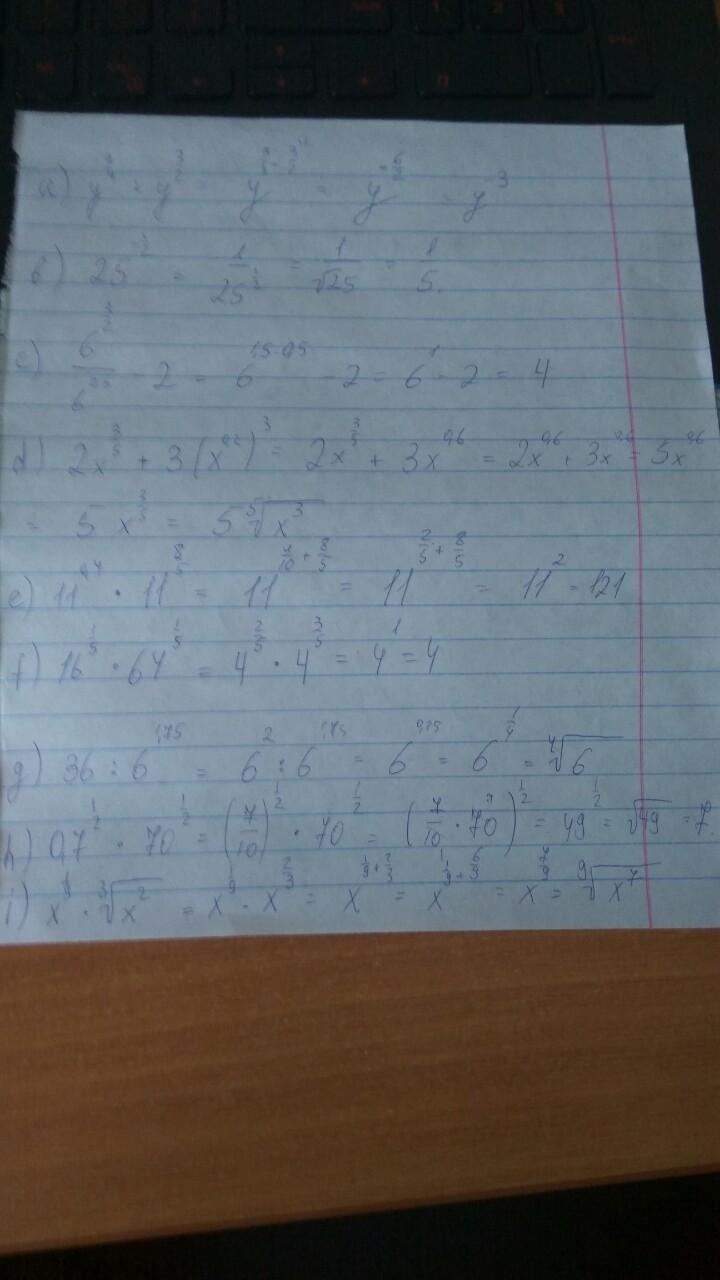 b) 25^(-1/2) = 1/25^(1/2) = 1/√25 = 1/5.
c) 6^(3/2)/6^(0,5) - 2 = 6^(1,5-0,5) - 2 = 6^1 - 2 = 4
d) 2x^(3/5) + 3(x^(0,2))^3 = 2x^(3/5) + 3x^(0,6) = 2x^(0,6) + 3x^(0,6) = 5x^(0,6)
= 5x^(3/5) = 5 ⁵√x^3
e) 11^(0,4) · 11^(8/5) = 11^(4/10 + 8/5) = 11^(2/5 + 8/5) = 11^2 = 121
f) 16^(1/5) · 64^(1/5) = 4^(2/5) · 4^(3/5) = 4^1 = 4
g) 36 : 6^(1,75) = 6^2 : 6^(1,75) = 6^(0,25) = 6^(1/4) = ⁴√6
h) 0,7^(1/2) · 70^(1/2) = (7/10)^(1/2) · 70^(1/2) = (7/10 · 70)^(1/2) = 49^(1/2) = √49 = 7.
i) x^(1/9) · ³√x^2 = x^(1/9) · x^(2/3) = x^(1/9 + 2/3) = x^(1/9 + 6/9) = x^(7/9) = ⁹√x^7